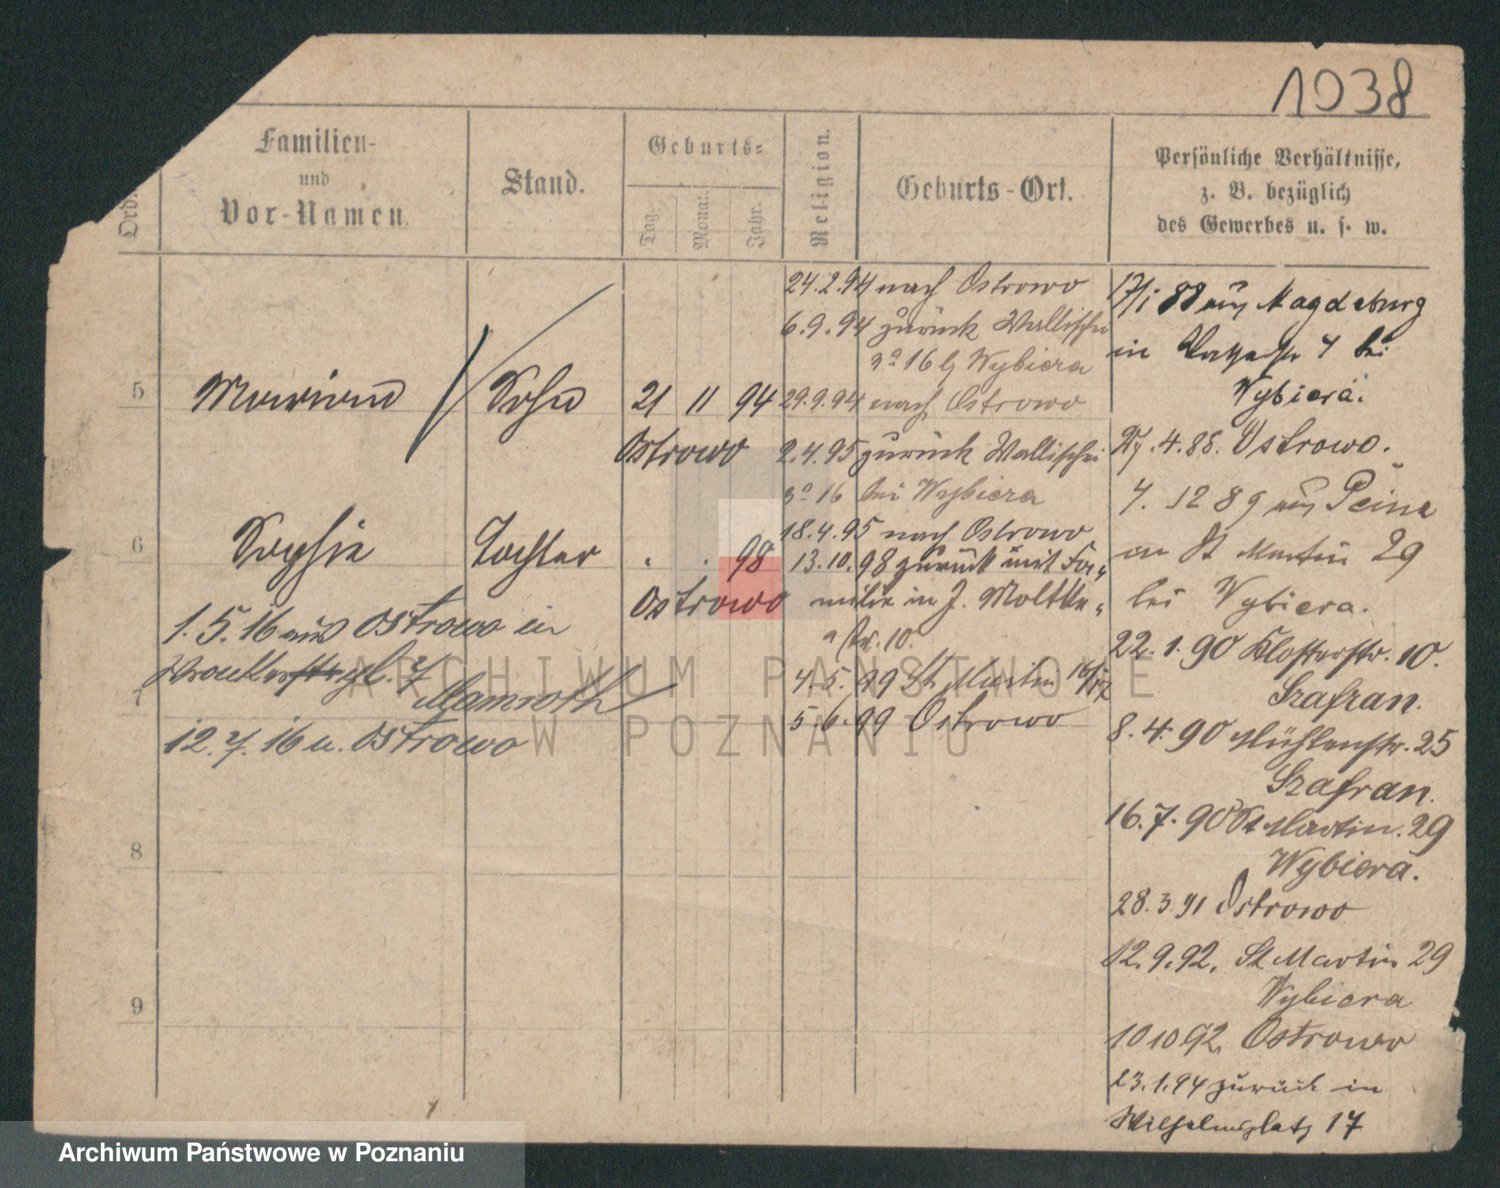 1038
Ord.
Familien-
und
Vor-Namen.
Stand.
Geburts-
Tag.
Monat.
Jahr.
Religion.
Geburts-Ort.
Persönliche Verhältnisse,
z. B. bezüglich
des Gewerbes u. s. w.
5
Marian
Sohn
21 11 94
Ostrowo
6
Sophie
Tochter
. . 98
Ostrowo
1.5.16 aus Ostrowo in
gl. 7
Mamroth
7
12.7.16 u. Ostrowo
8
9
24.2.94 nach Ostrowo
6.9.94 zurück Wallischei
No 16 b/ Wybiera
29.9.94 nach Ostrowo
2.4.95 zurück Wallischei
No 16 bei Wybiera
18.4.95 nach Ostrowo
13.10.98 zurück mit Fa-
milie in J. Moltke-
str. 10.
4.5.99 St. Martin
5.6.99 Ostrowo
17/1 88 aus Magdeburg
in 4 bei
Wybiera.
.4.88. Ostrowo.
7. 12 89 aus Peine
an St Martin 29
bei Wybiera.
22.1.90 Klosterstr. 10.
Szafran.
8.4.90 Mühlenstr. 25
Szafran.
16.7.90 St Martin. 29
Wybiera.
28.3.91 Ostrowo
12.9.92. St Martin 29
Wybiera
10 10 92. Ostrowo
23.1.94 zurück in
Wilhelmsplatz 17
ARCHIWUM PAŃSTWOWE
W POZNANIU
Archiwum Państwowe w Poznaniu